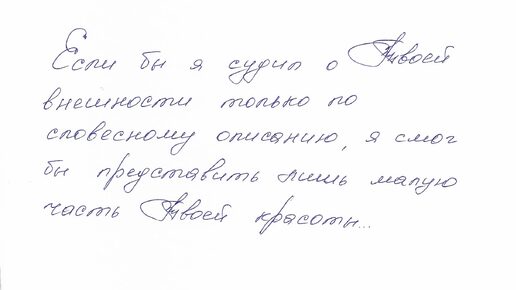 Если бы я судил о Твоей
внешности только по
словесному описанию, я смог
бы представить лишь малую
часть Твоей красоты...